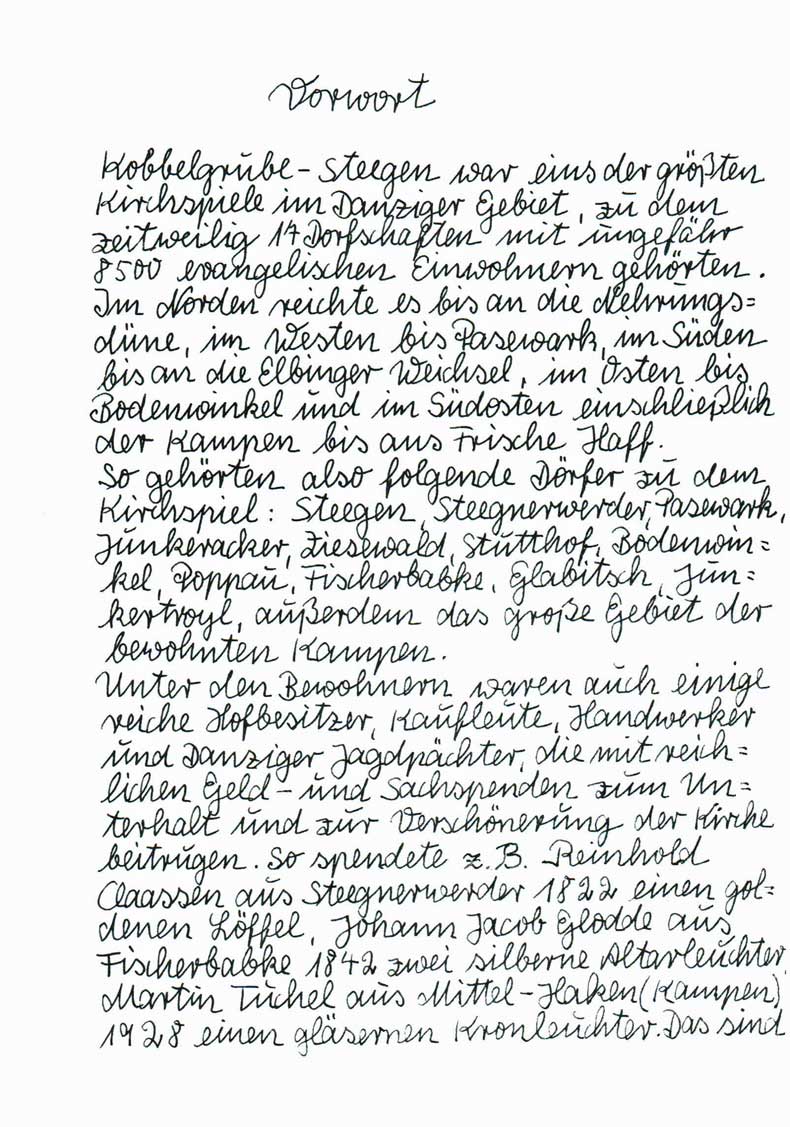 Vorwort
Kobbelgrube - Steegen war eins der größten
Kirchspiele im Danziger Gebiet, zu dem
zeitweilig 17 Dorfschaften mit ungefähr
8500 evangelischen Einwohnern gehörten.
Im Norden reichte es bis an die Nehrungs=
düne, im Westen bis Pasewark, im Süden
bis an die Elbinger Weichsel, im Osten bis
Bodenwinkel und im Südosten einschließlich
der Kampen bis ans Frische Haff.
So gehörten also folgende Dörfer zu dem
Kirchspiel: Steegen, Steegnerwerder, Pasewark,
Junkeracker, Ziesewald, Stutthof, Bodenwin=
kel, Poppau, Fischerbabke, Glabitsch, Jun=
kertroyl, außerdem das große Gebiet der
bewohnten Kampen.
Unter den Bewohnern waren auch einige
reiche Hofbesitzer, Kaufleute, Handwerker
und Danziger Jagdpächter, die mit reich=
lichen Geld- und Sachspenden zum Un=
terhalt und zur Verschönerung der Kirche
beitrugen. So spendete z.B. Reinhold
Claassen aus Steegnerwerder 1822 einen gol=
denen Löffel, Johann Jacob Glodde aus
Fischerbabke 1842 zwei silberne Altarleuchter,
Martin Tuchel aus Mittel-Haken (Kampen)
1928 einen gläsernen Kronleuchter. Das sind